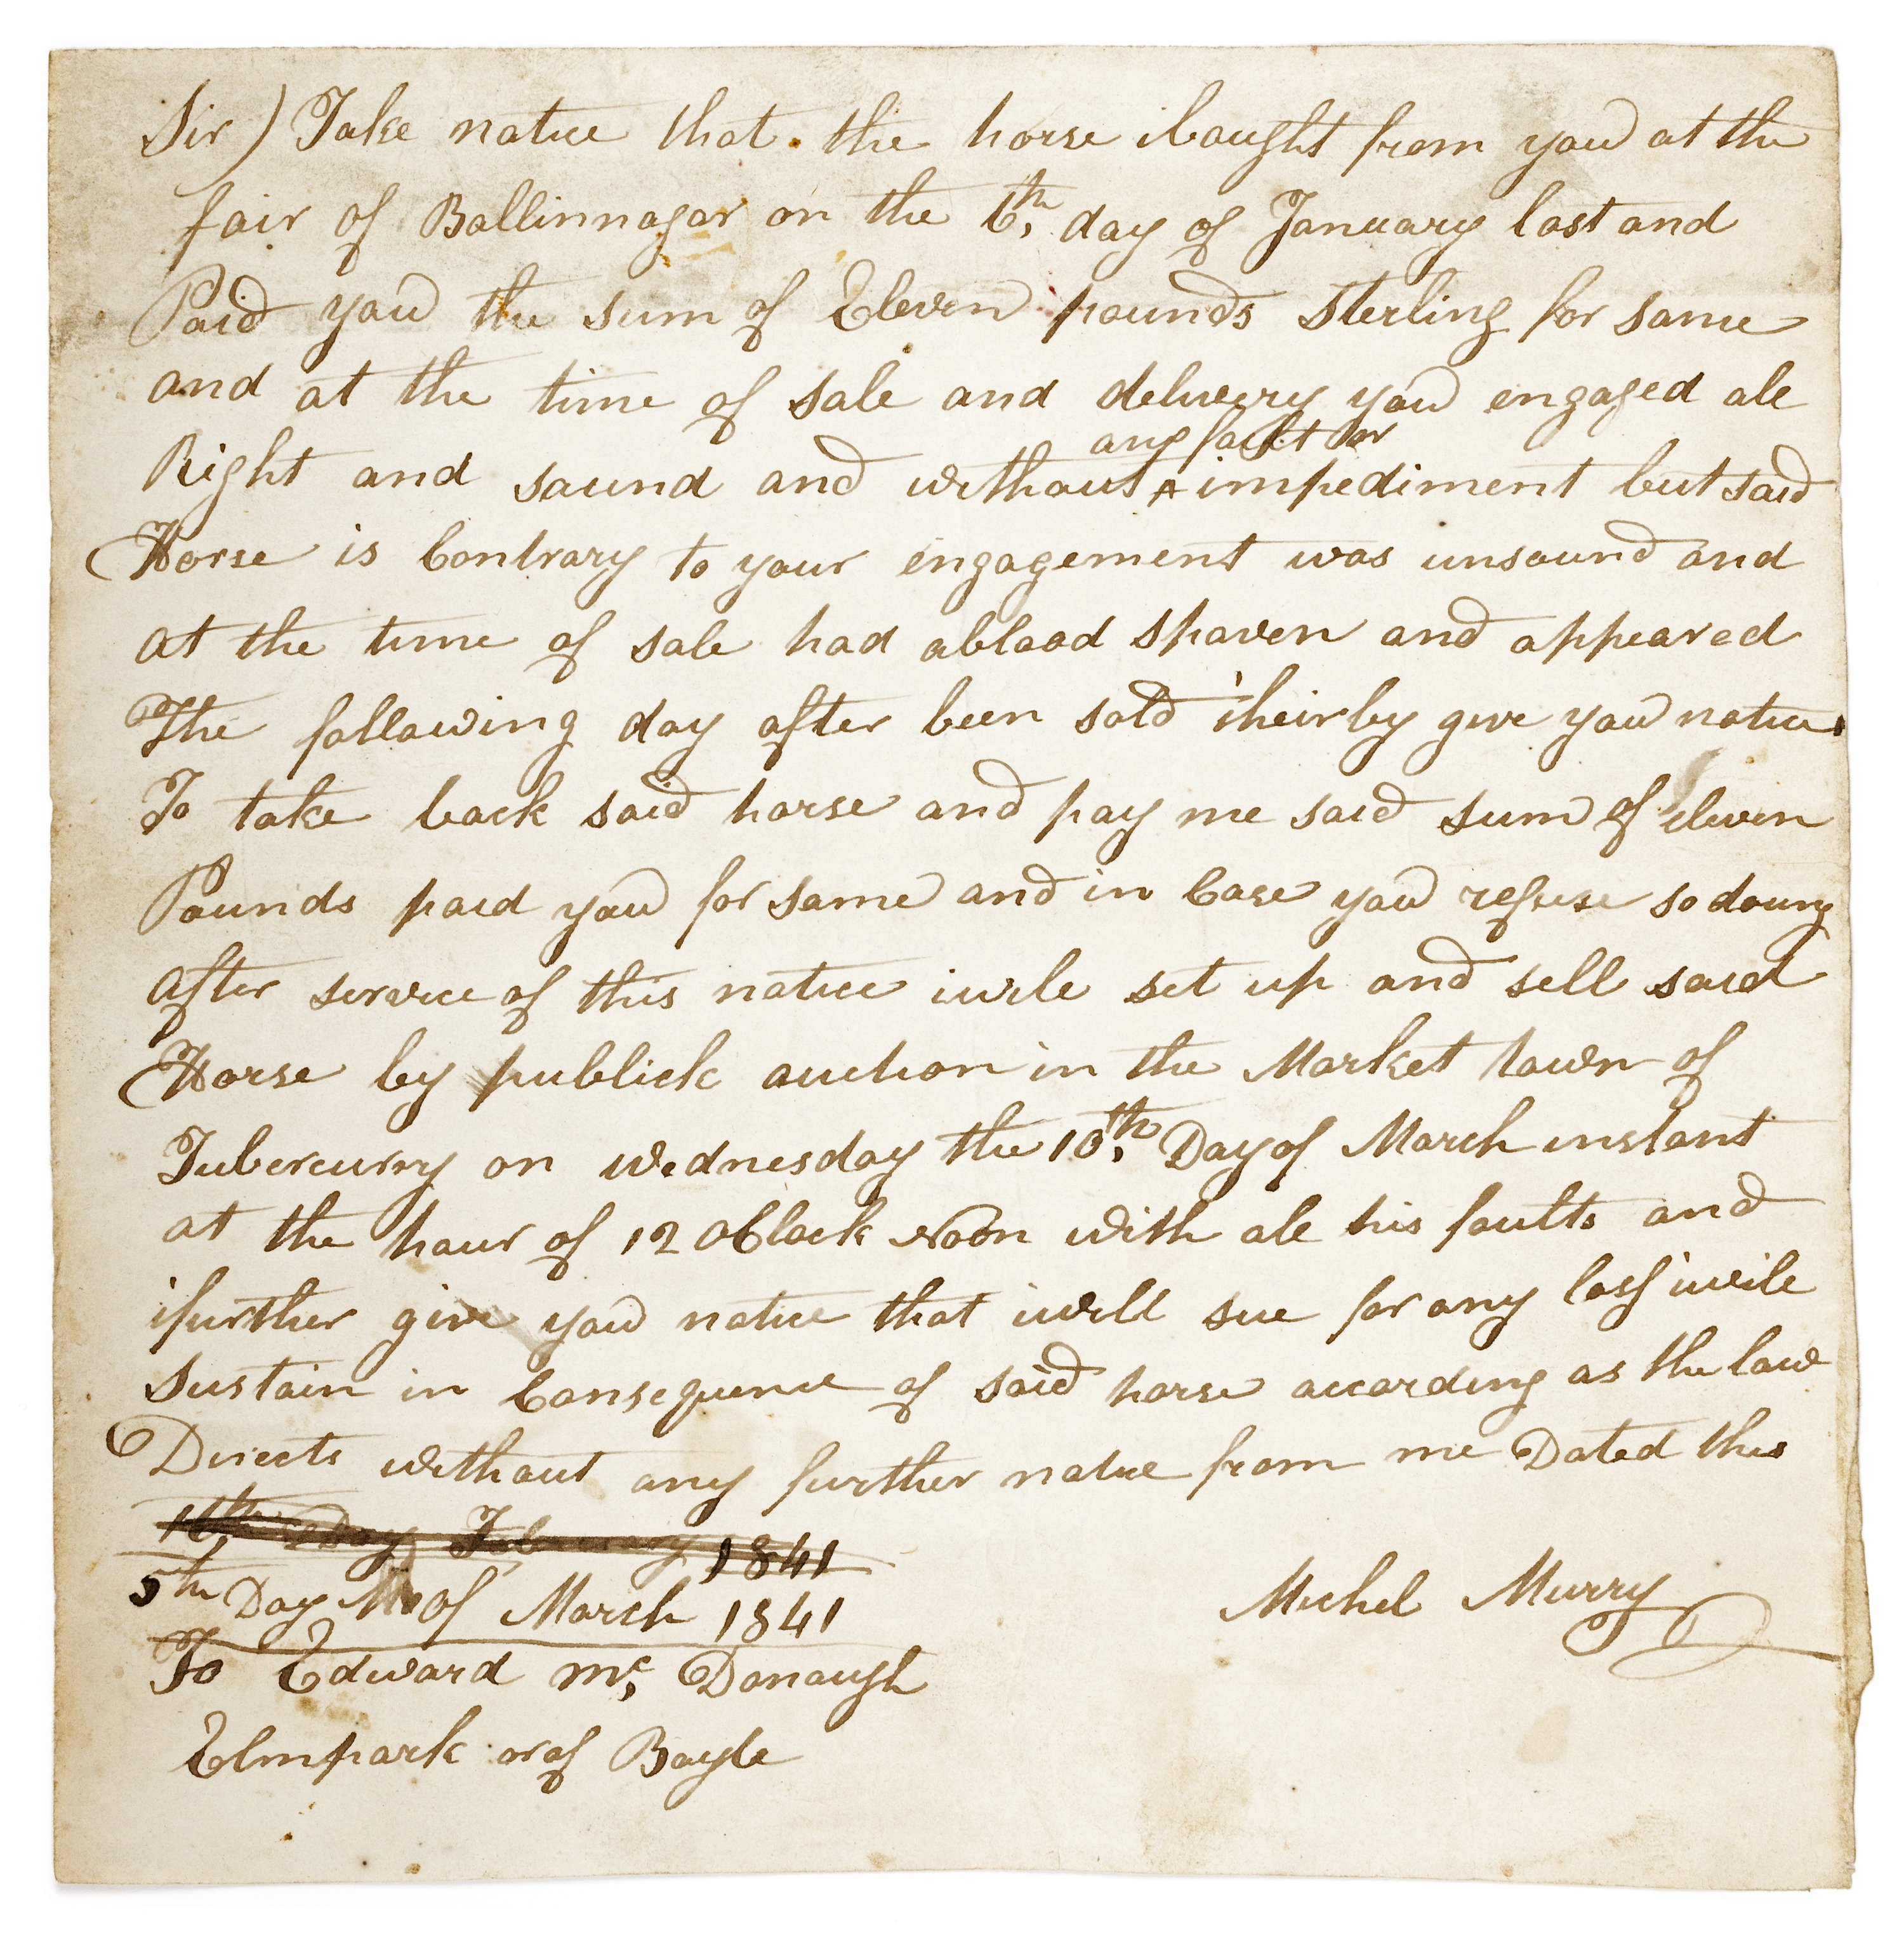 Sir) Take notice that the horse ibought from you at the
fair of Ballinnagar on the 6th, day of January last and
Paid you the sum of Eleven pounds Sterling for same
and at the time of sale and delivery you engaged all
any fault or
Right and sound and without ^ impediment but said
Horse is Contrary to your engagement was unsound and
at the time of sale had ablood spaven and appeared
The following day after been sold iheirby give you notice
To take back said horse and pay me said sum of eleven
Pounds paid you for same and in Case you refuse so doing
after service of this notice iwill set up and sell said
Horse by publick auction in the Market town of
Tubercurry on wednesday the 10th, Day of March instant
at the hour of 12 OClock Noon with all his faults and
ifurther give you notice that iwill sue for any loss iwill
Sustain in Consequence of said horse according as the law
Directs without any further notice from me Dated this
Day February 1841
5th Day of March 1841
Michel Murry
To Edward Mc, Donaugh
Elmpark or of Boyle